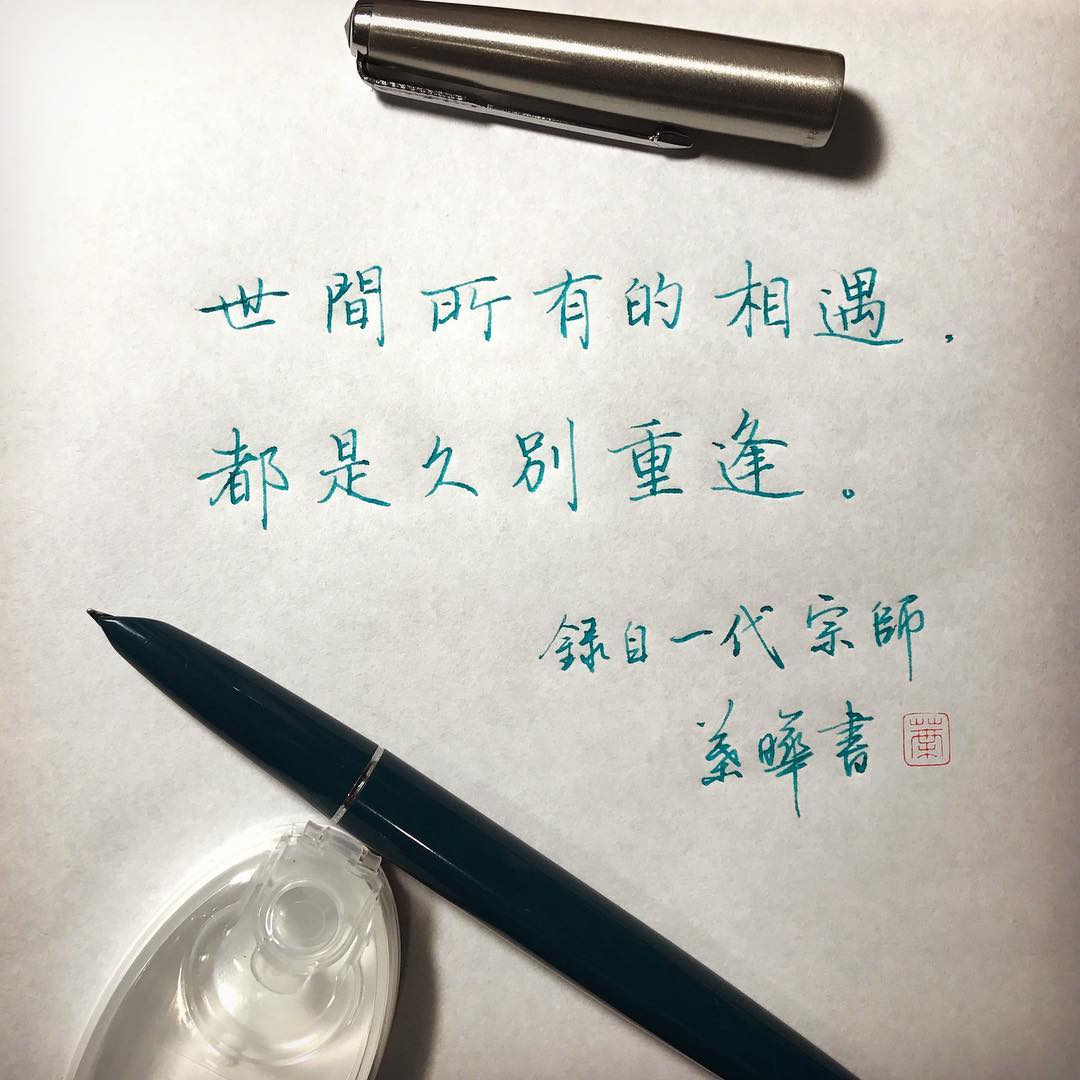 世間所有的相遇,
都是久別重逢。
録自一代宗師
葉曄書 葉